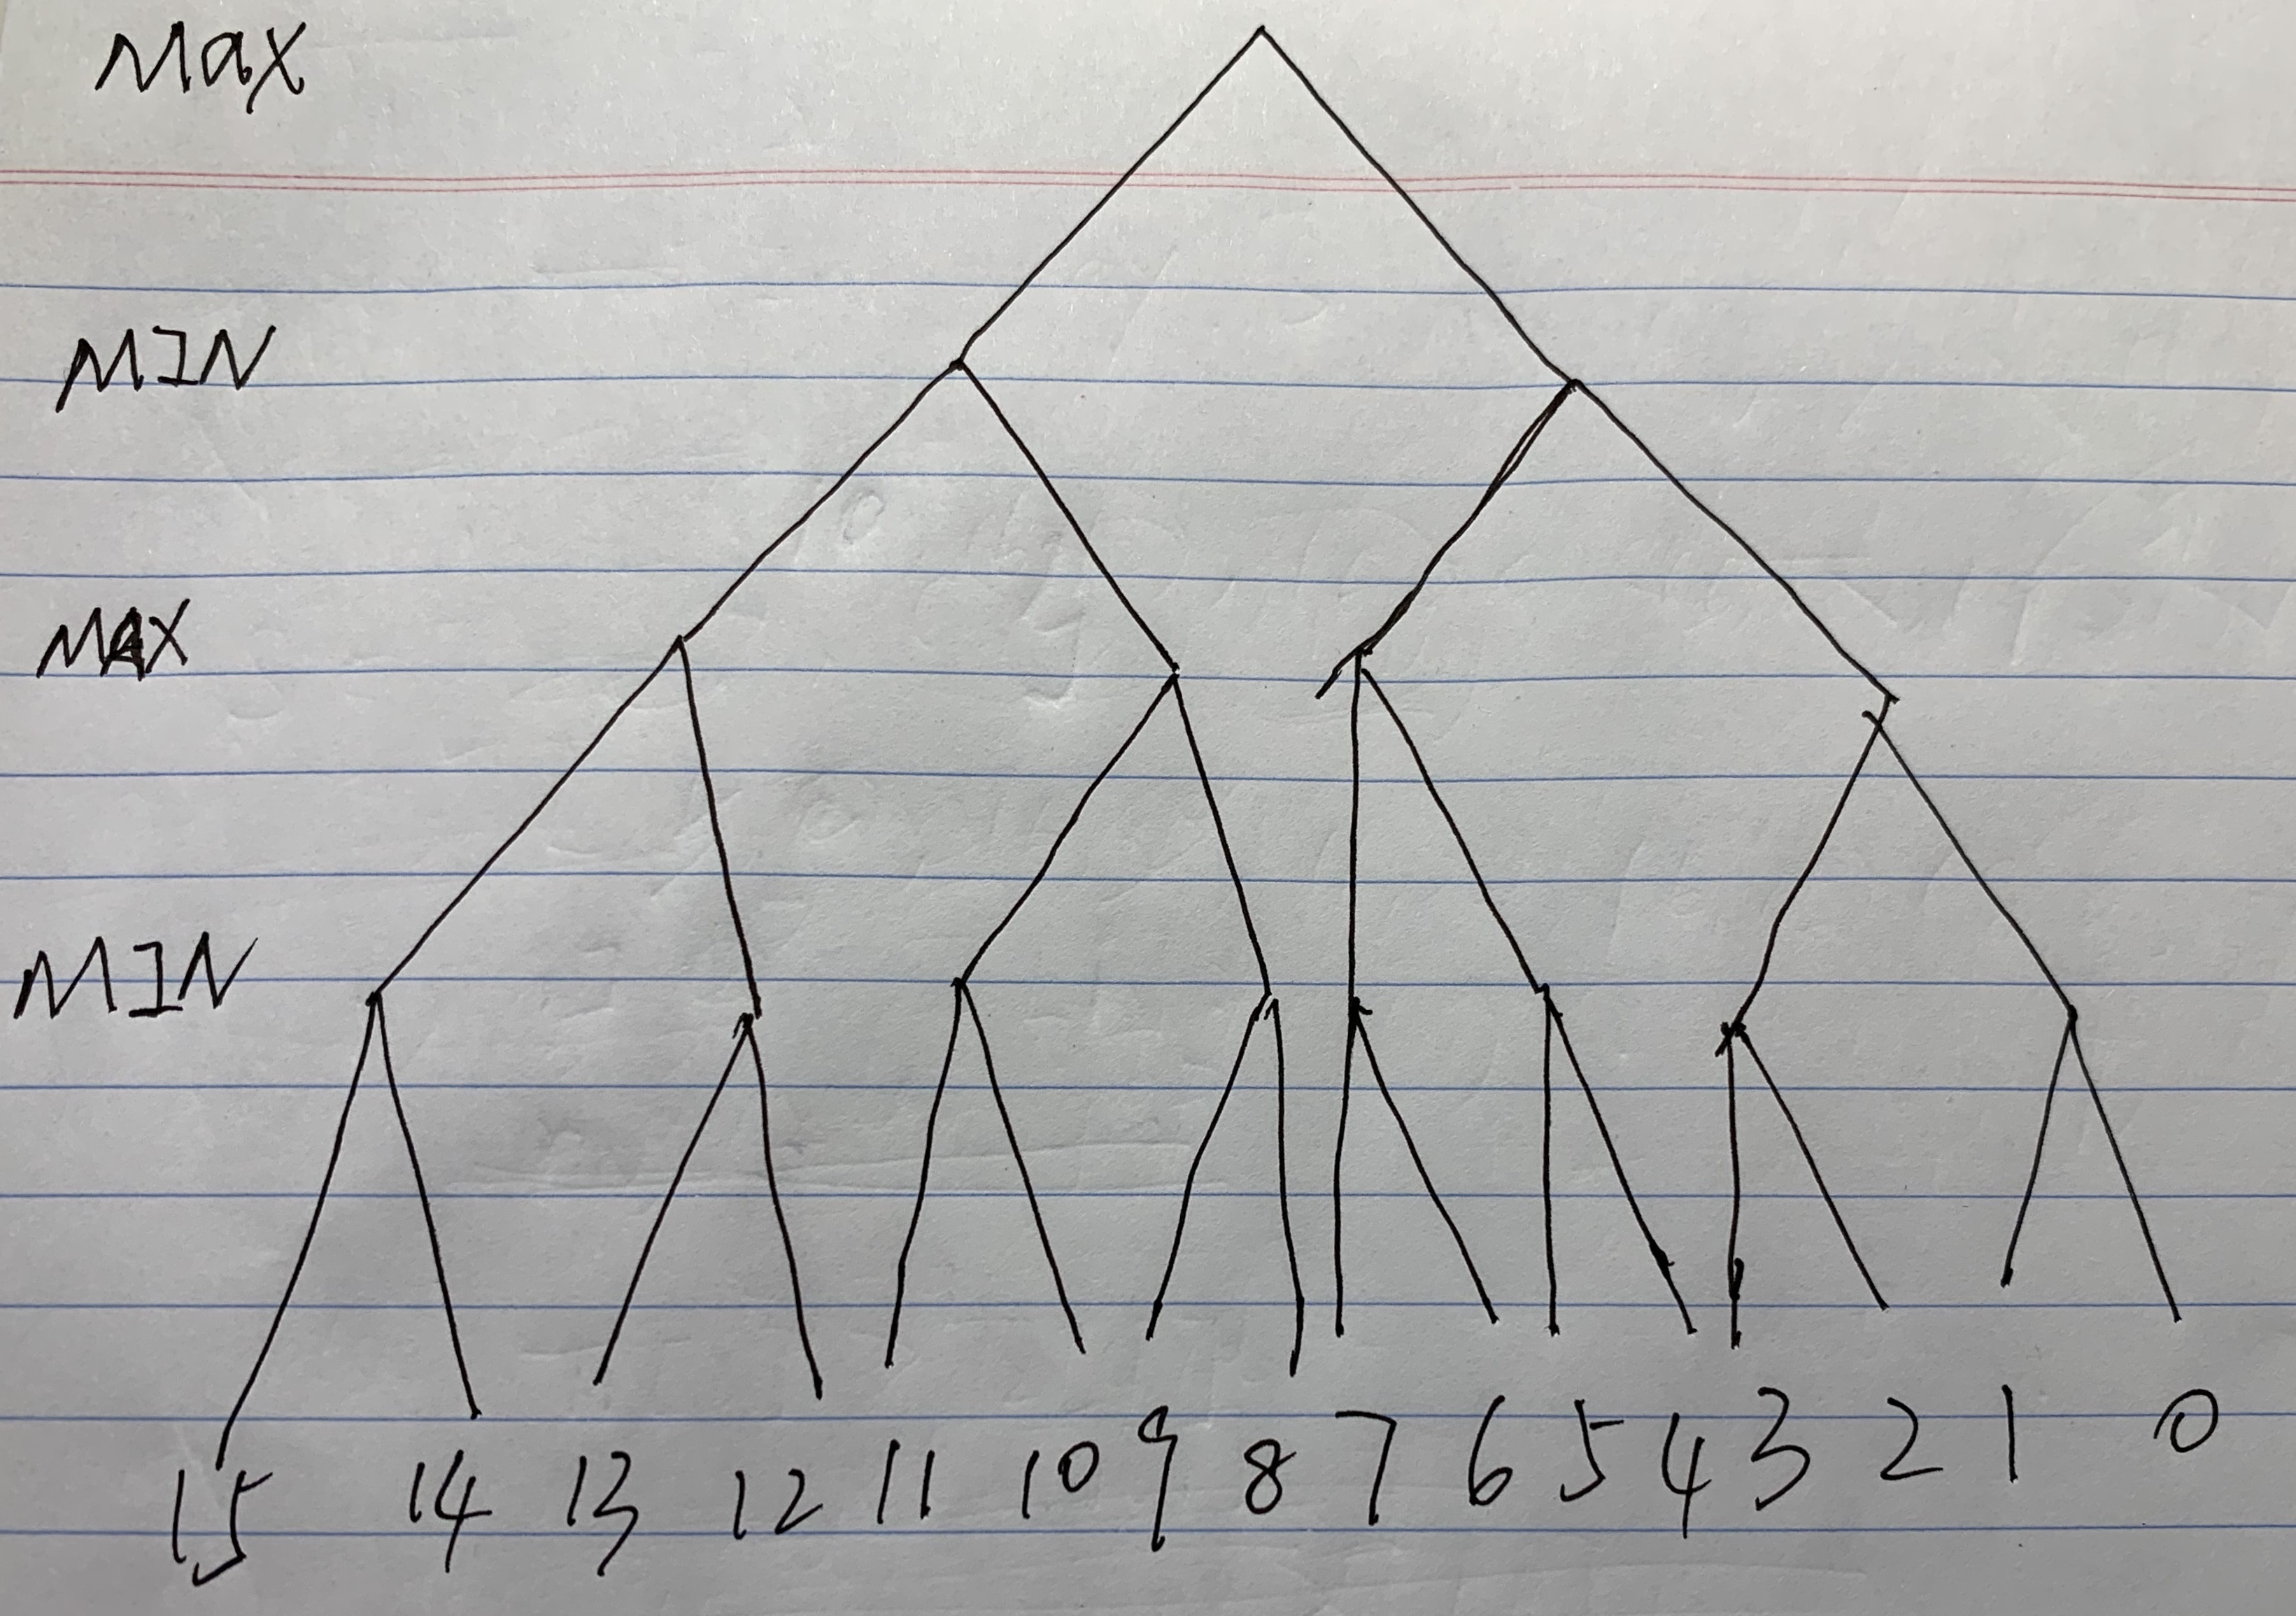 Max
MIN
MAX
MIN
15 14 13 12 11 10 9 8 7 6 5 4 3 2 1 0